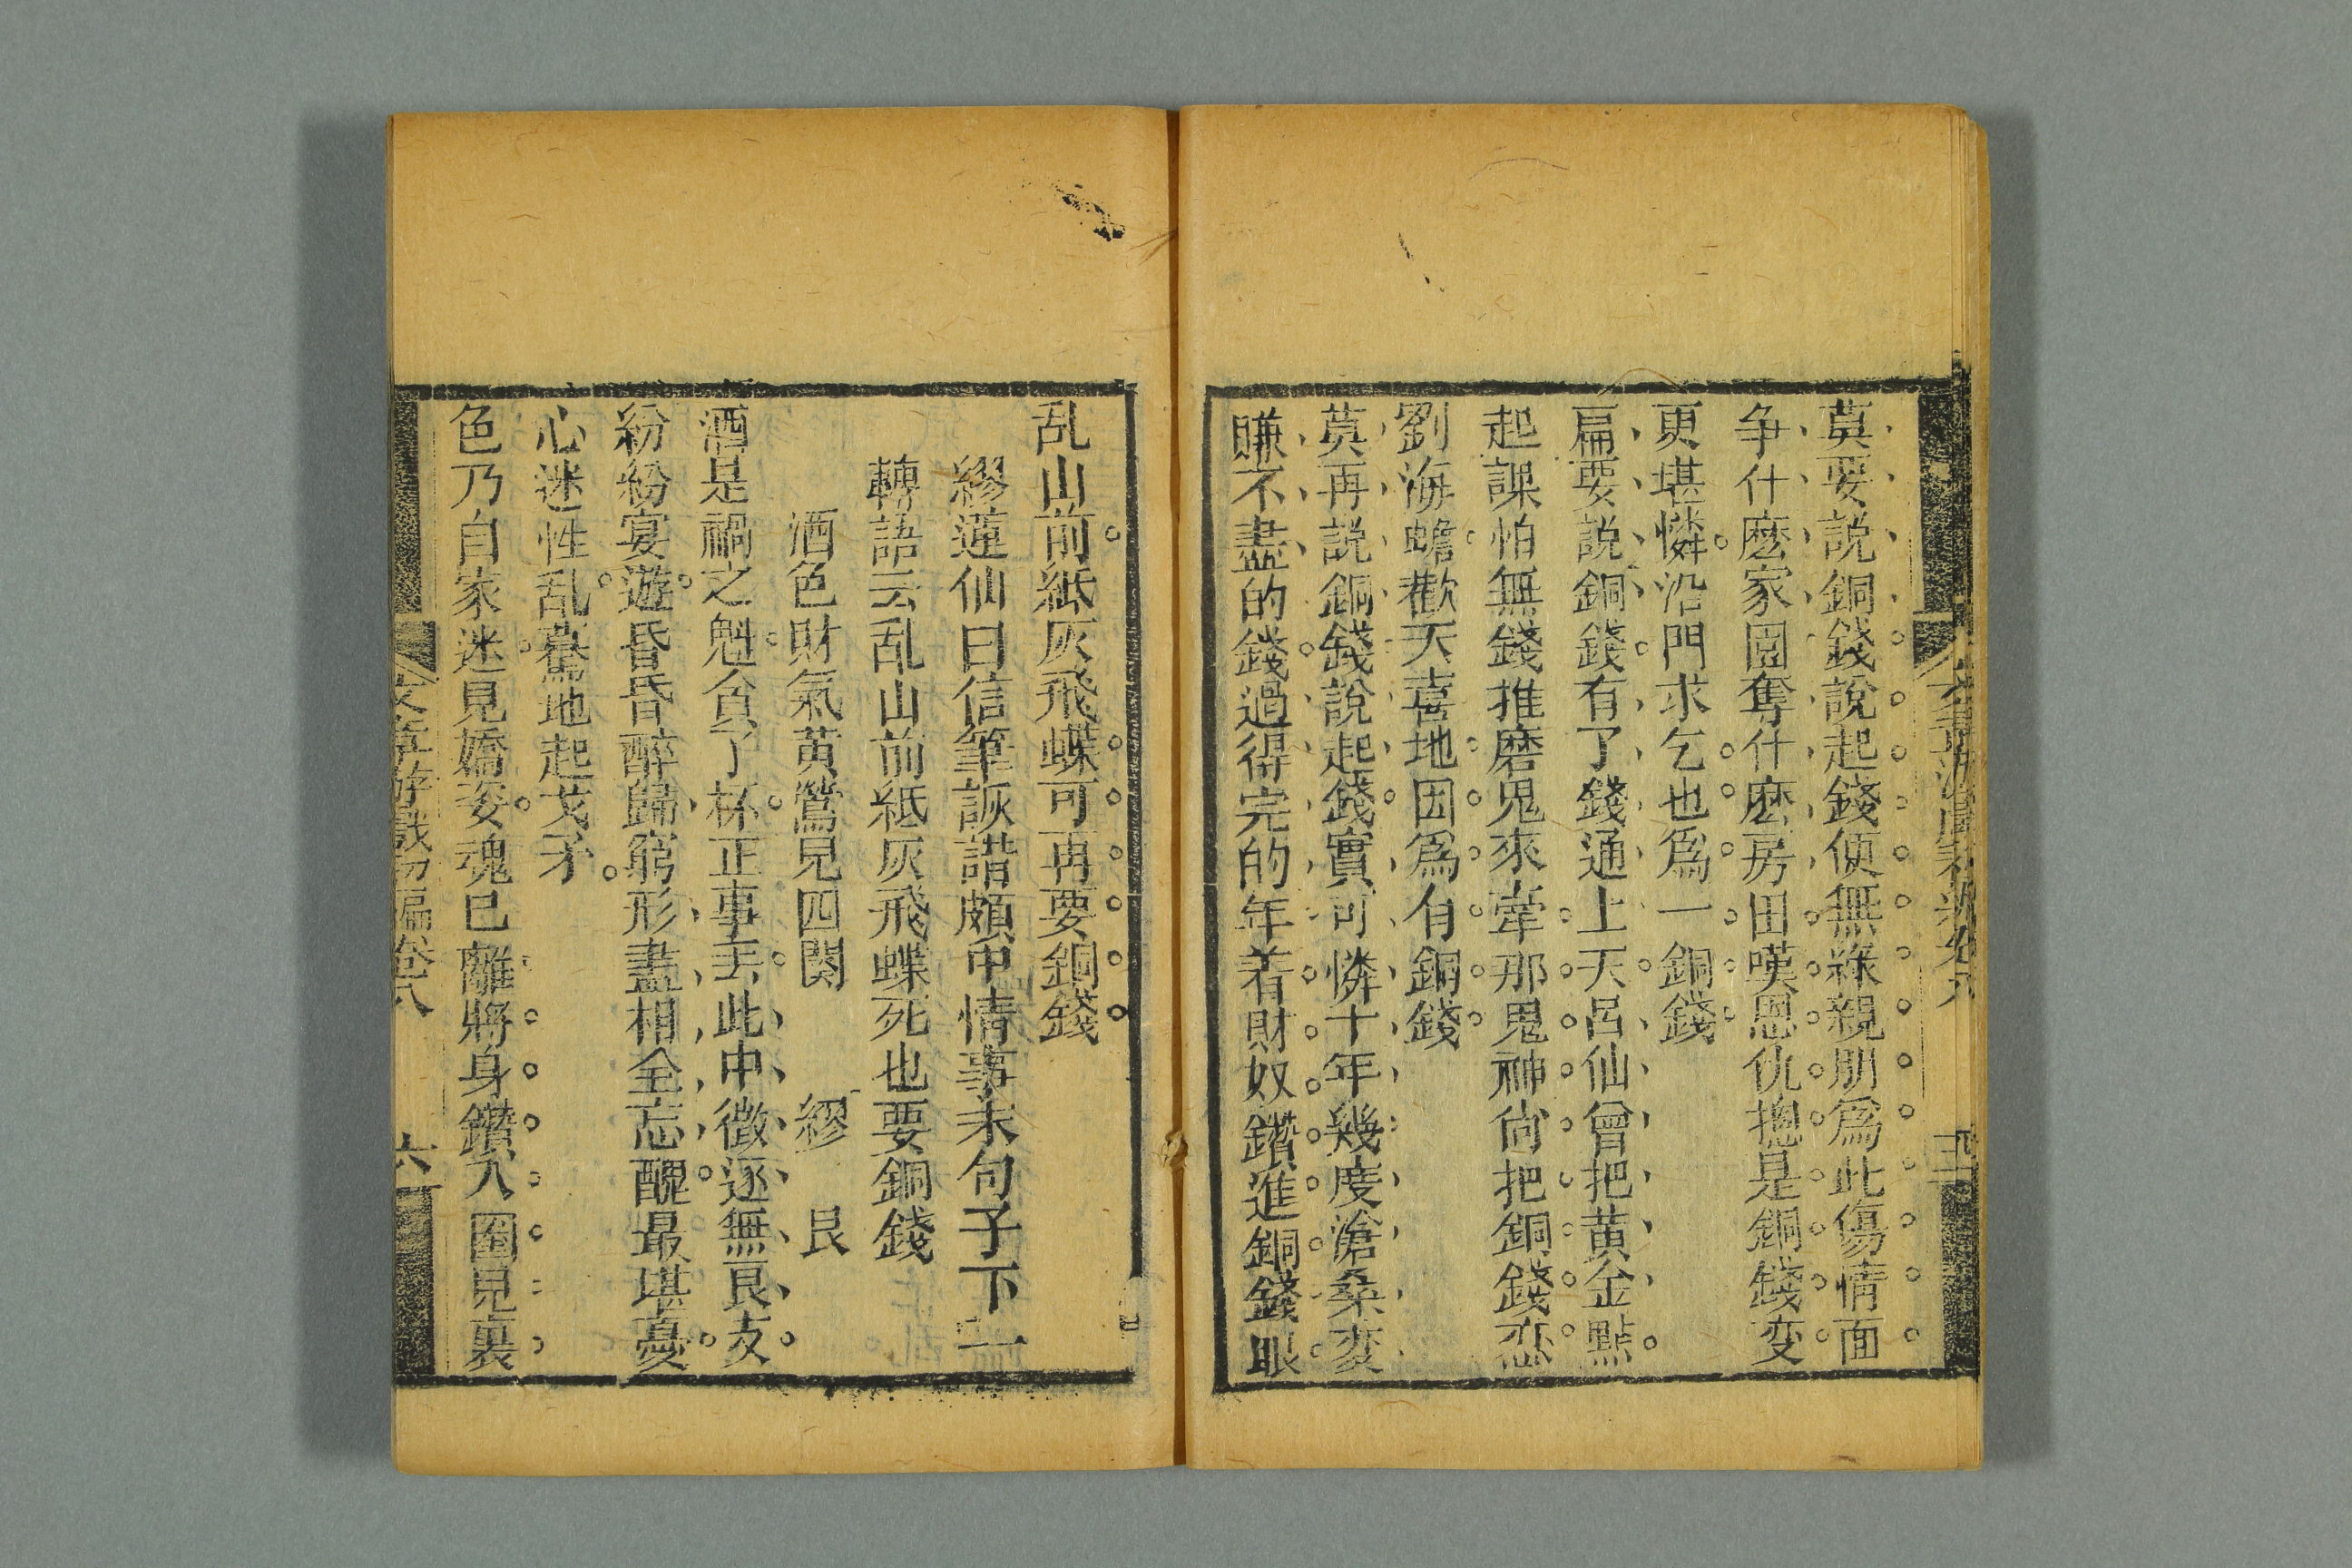 莫要説銅錢說起錢便無緣親朋爲此傷情面
争什麽家園奪什麽房田嘆恩仇揔是銅錢变
更堪憐沿門求乞也爲一銅錢
扁要説銅錢有了錢通上天呂仙曾把黄金點
起課怕無錢推磨鬼來牽那鬼神尙把銅錢恋
劉海蟾歡天喜地因爲有銅錢
莫再説銅錢說起錢實可憐十年幾度滄桑変
賺不盡的錢過得完的年着財奴鑽進銅錢眼
乱山前紙灰飛蝶可再要銅錢
繆蓮仙曰信筆詼諧頗中情事末句予下一
轉語云乱山前紙灰飛蝶死也要銅錢
酒色財氣黄鶯兒四闋 繆 艮
酒是禍之魁貪了杯正事丢此中徵逐無良友
紛紛宴遊昏昏醉歸窮形盡相全忘醜最堪憂
心迷性乱驀地起戈矛
色乃自家迷見嬌姿魂已離將身鑽入圈兒裏
文章游戲初編卷八 六